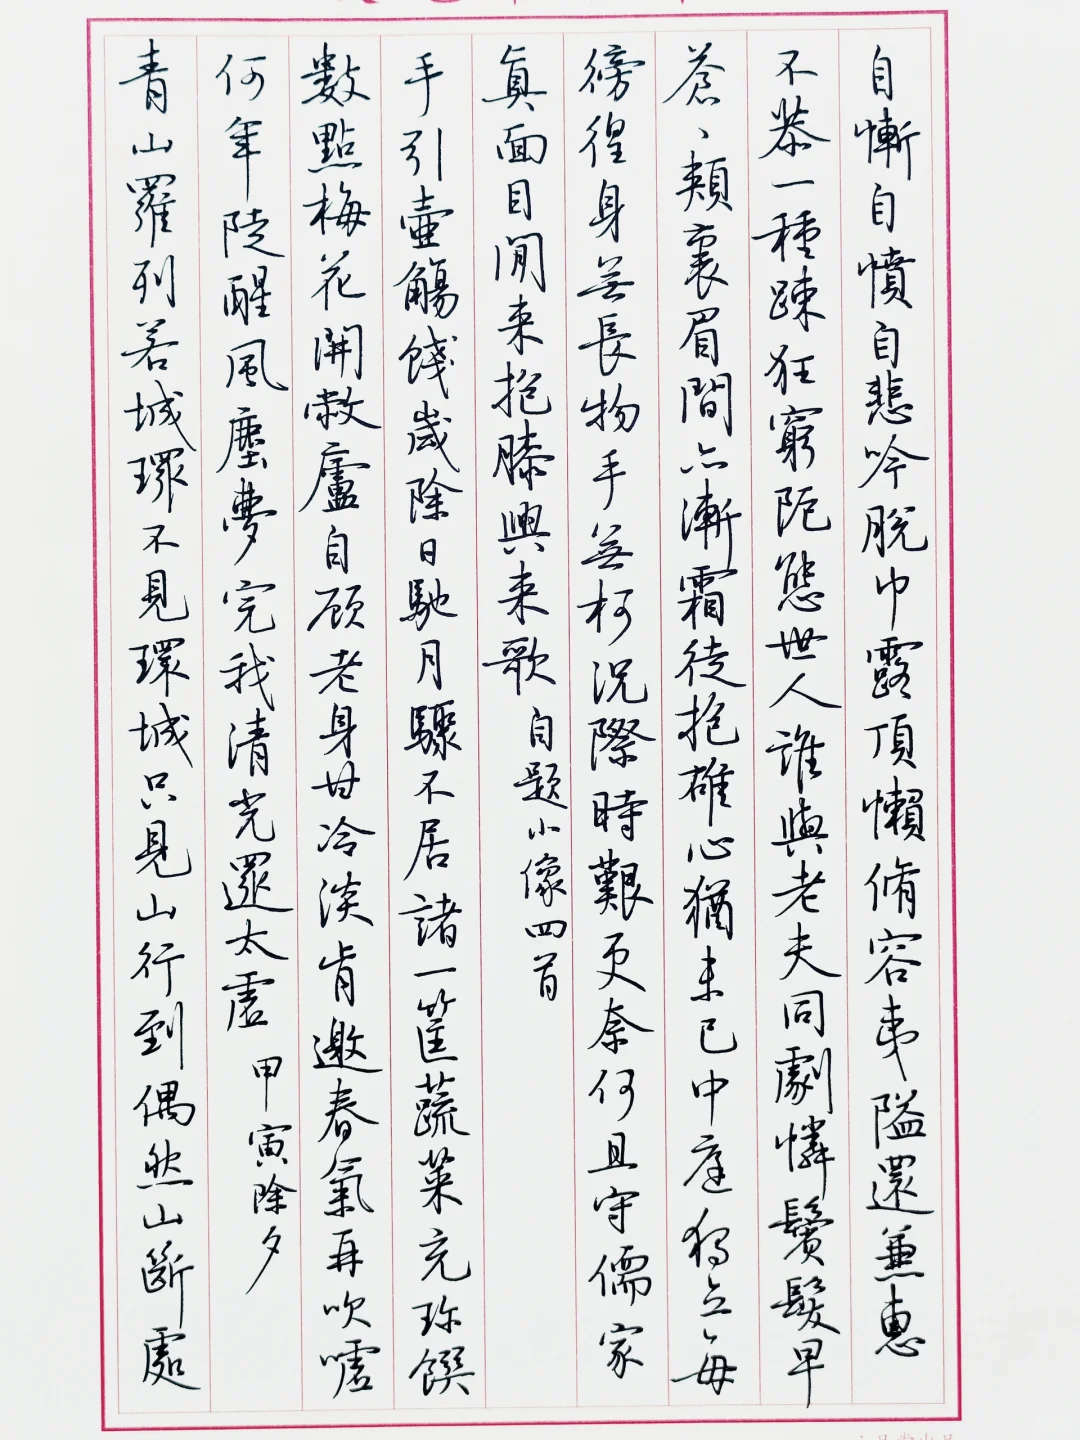 自慚自憤自悲吟脫巾露頂懶脩容夷隘還兼惠
不恭一種踈狂窮阨態世人誰與老夫同劇憐鬢髮早
蒼、頰裏眉間亦漸霜徒抱雄心猶未已中庭獨立每
徬徨身無長物手無柯況際時艱更奈何且守儒家
真面目閒來抱膝興來歌 自題小像四首
手引壺觴餞歲除日馳月驟不居諸一筐蔬菜充珍饌
數點梅花開敝廬自顧老身甘冷淡肯邀春氣再吹噓
何年陡醒風塵夢完我清光還太虛 甲寅除夕
青山羅列若城環不見環城只見山行到偶然山斷處